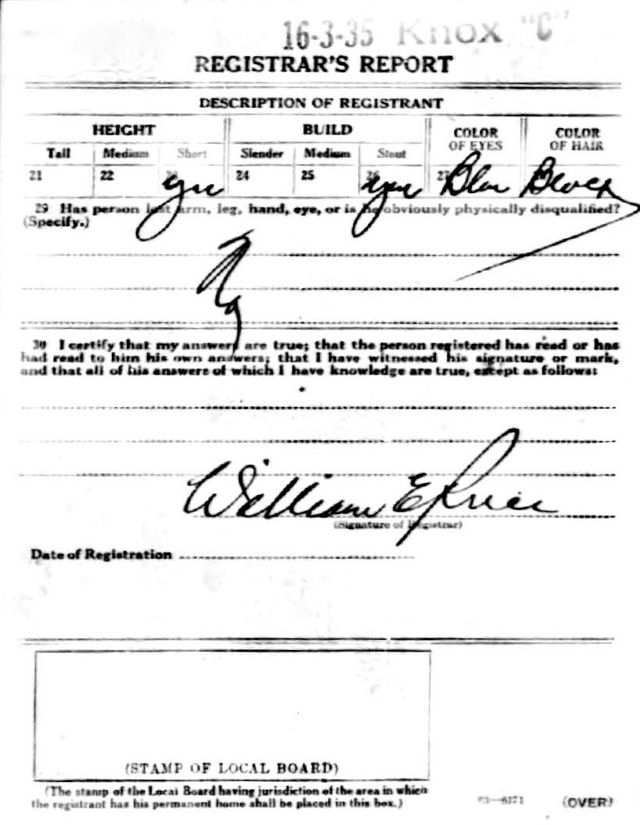 16-3-35 Knox "C"
REGISTRAR'S REPORT
DESCRIPTION OF REGISTRANT
HEIGHT BUILD COLOR OF EYES COLOR OF HAIR
Tall Medium Short Slender Medium Stout
21 22 23 yes 24 25 26 yes 27 Blue Black
29 Has person lost arm, leg, hand, eye, or is he obviously physically disqualified?
(Specify.)
No
30 I certify that my answers are true; that the person registered has read or has
had read to him his own answers; that I have witnessed his signature or mark,
and that all of his answers of which I have knowledge are true, except as follows:
William E
(Signature of Registrar)
Date of Registration
(STAMP OF LOCAL BOARD)
(The stamp of the Local Board having jurisdiction of the area in which
the registrant has his permanent home shall be placed in this box.)
63—6171 (OVER)